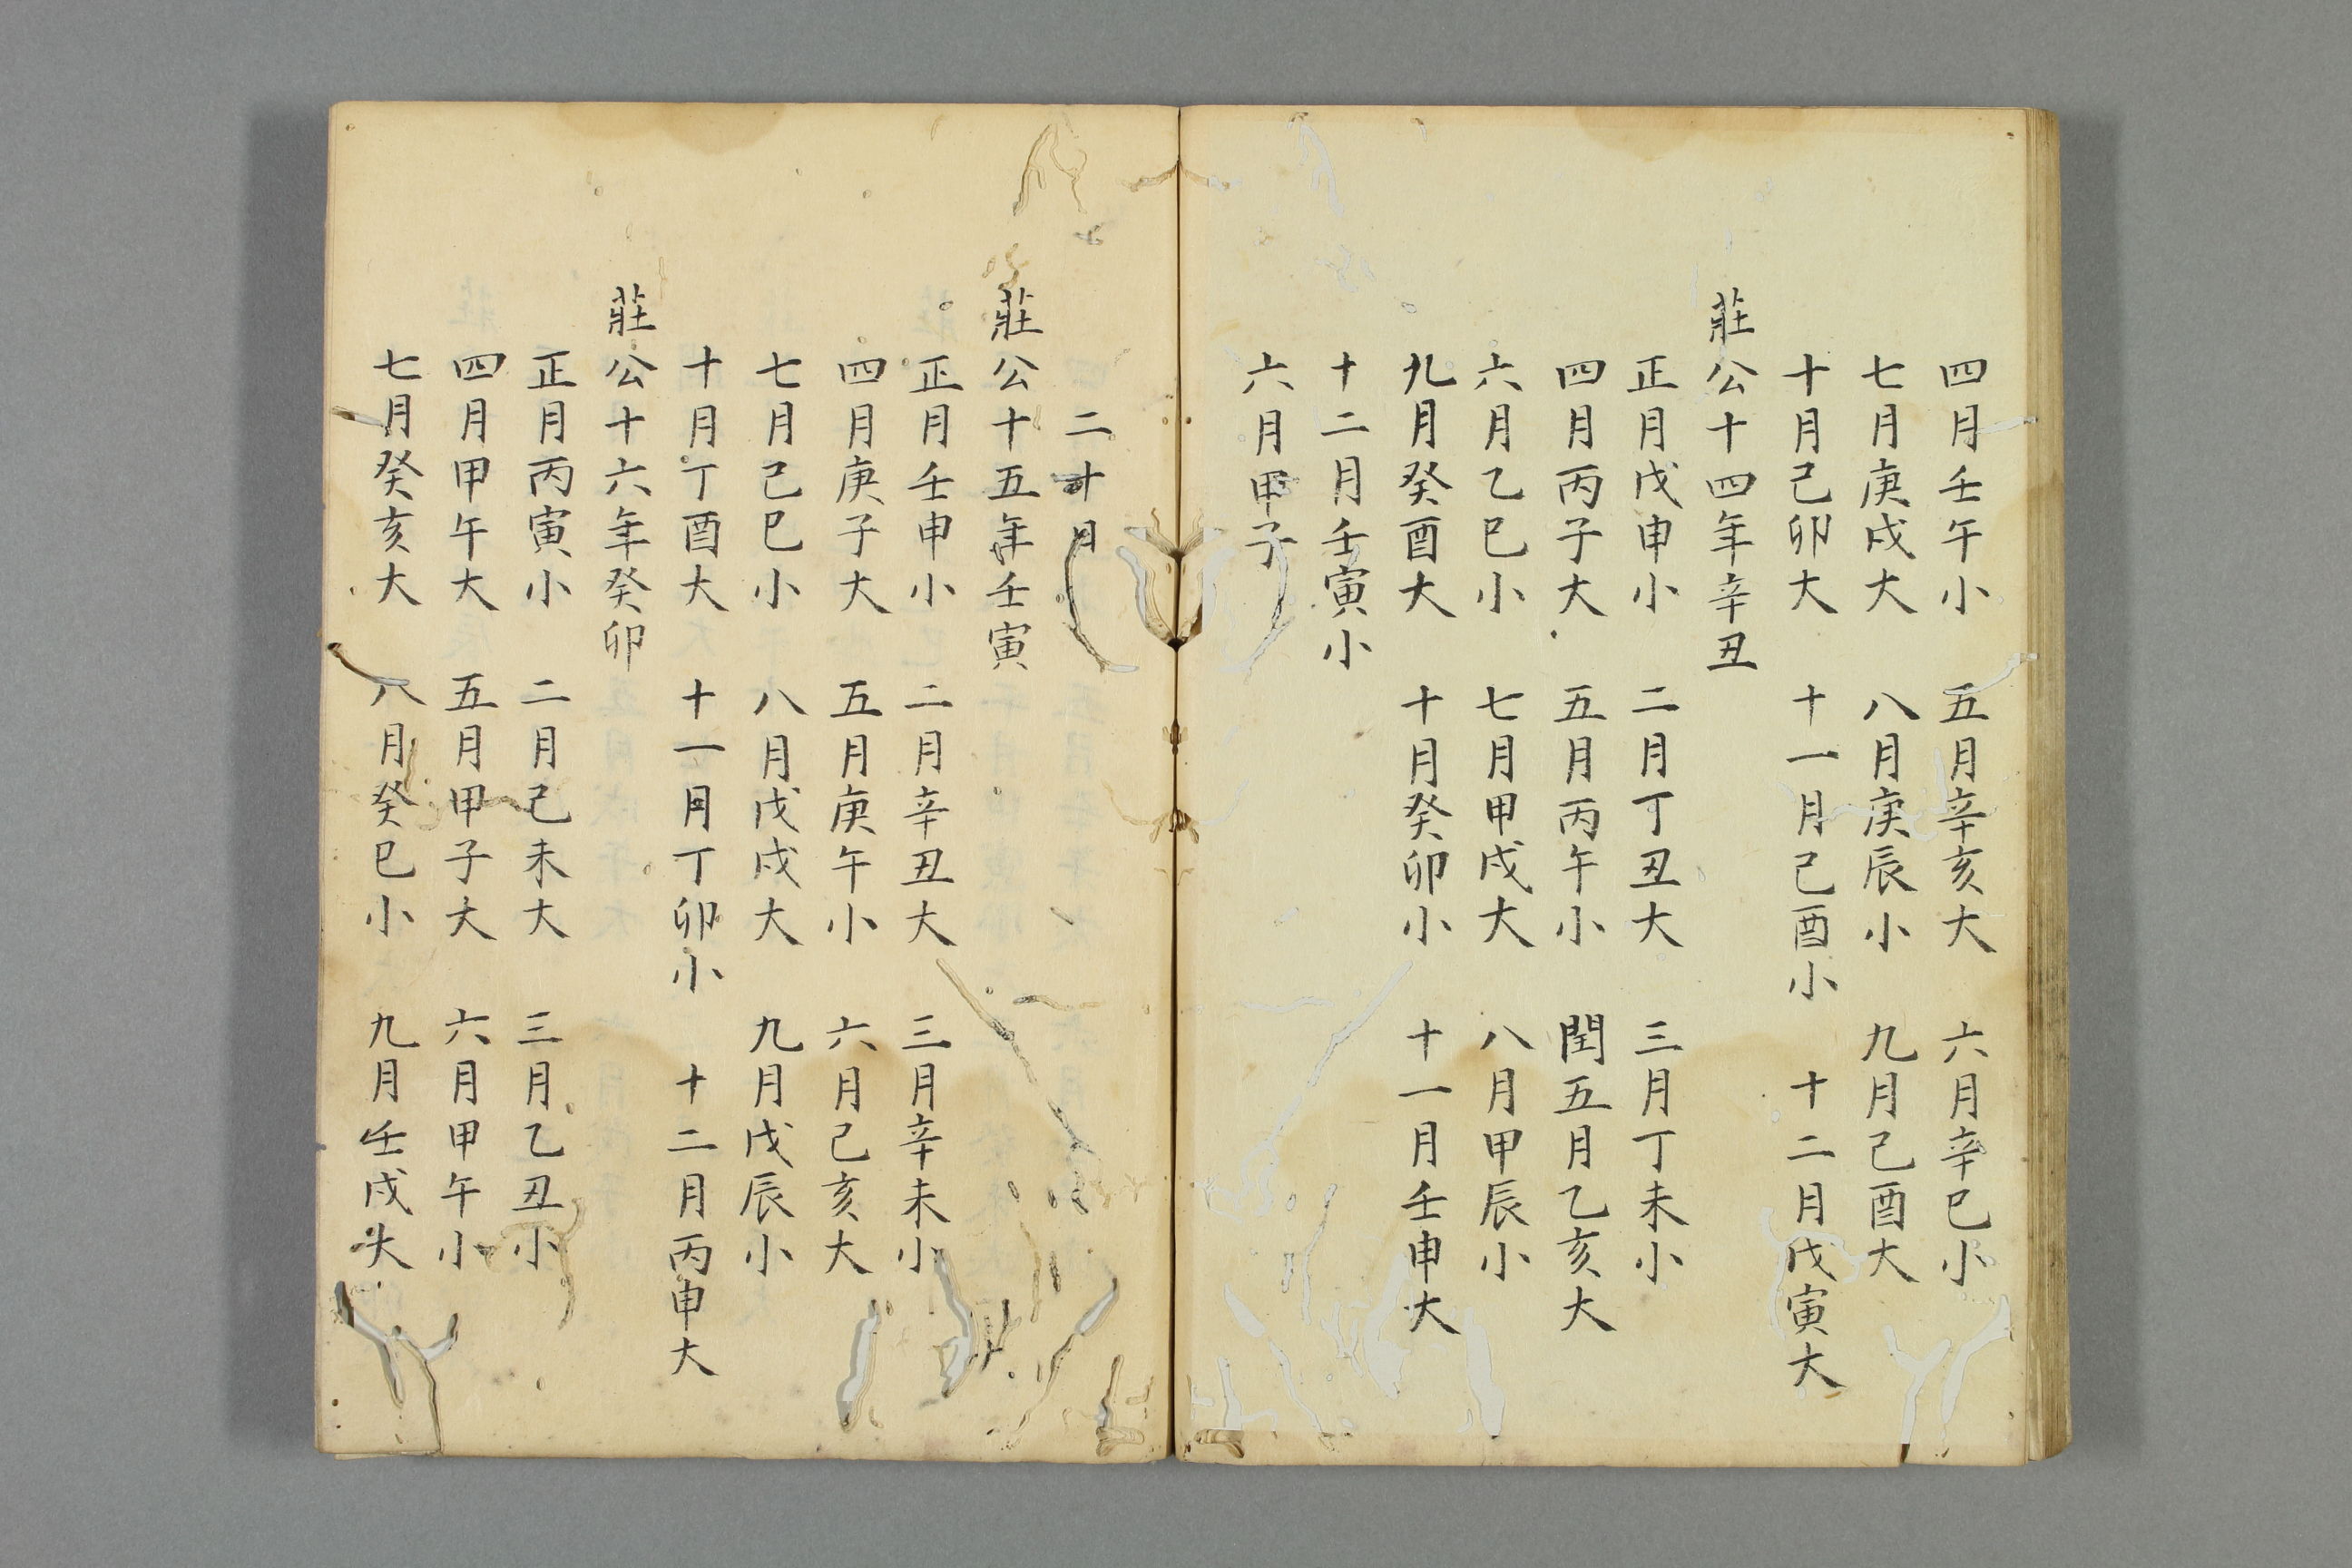 四月壬午小 五月辛亥大 六月辛巳小
七月庚戌大 八月庚辰小 九月己酉大
十月己卯大 十一月己酉小 十二月戊寅大
莊公十四年辛丑
正月戊申小 二月丁丑大 三月丁未小
四月丙子大 五月丙午小 閏五月乙亥大
六月乙巳小 七月甲戌大 八月甲辰小
九月癸酉大 十月癸卯小 十一月壬申大
十二月壬寅小
六月甲子
二十月
莊公十五年壬寅
正月壬申小 二月辛丑大 三月辛未小
四月庚子大 五月庚午小 六月己亥大
七月己巳小 八月戊戌大 九月戊辰小
十月丁酉大 十一月丁卯小 十二月丙申大
莊公十六年癸卯
正月丙寅小 二月己未大 三月乙丑小
四月甲午大 五月甲子大 六月甲午小
七月癸亥大 八月癸巳小 九月壬戌大